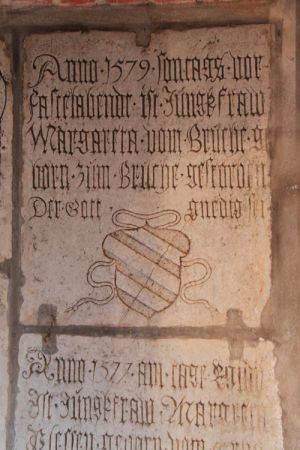 Anno · 1579 · sontags · vor
fastelabendt · ist · Jungkfraw
Margareta · vom · Brüche · g
born · züm · Brüche · gestorben
Der · Gott · gnedig · sei
Anno · 1577 · am · tage
ist · Jungkfraw · Margreta
Plessen · geborn · vom